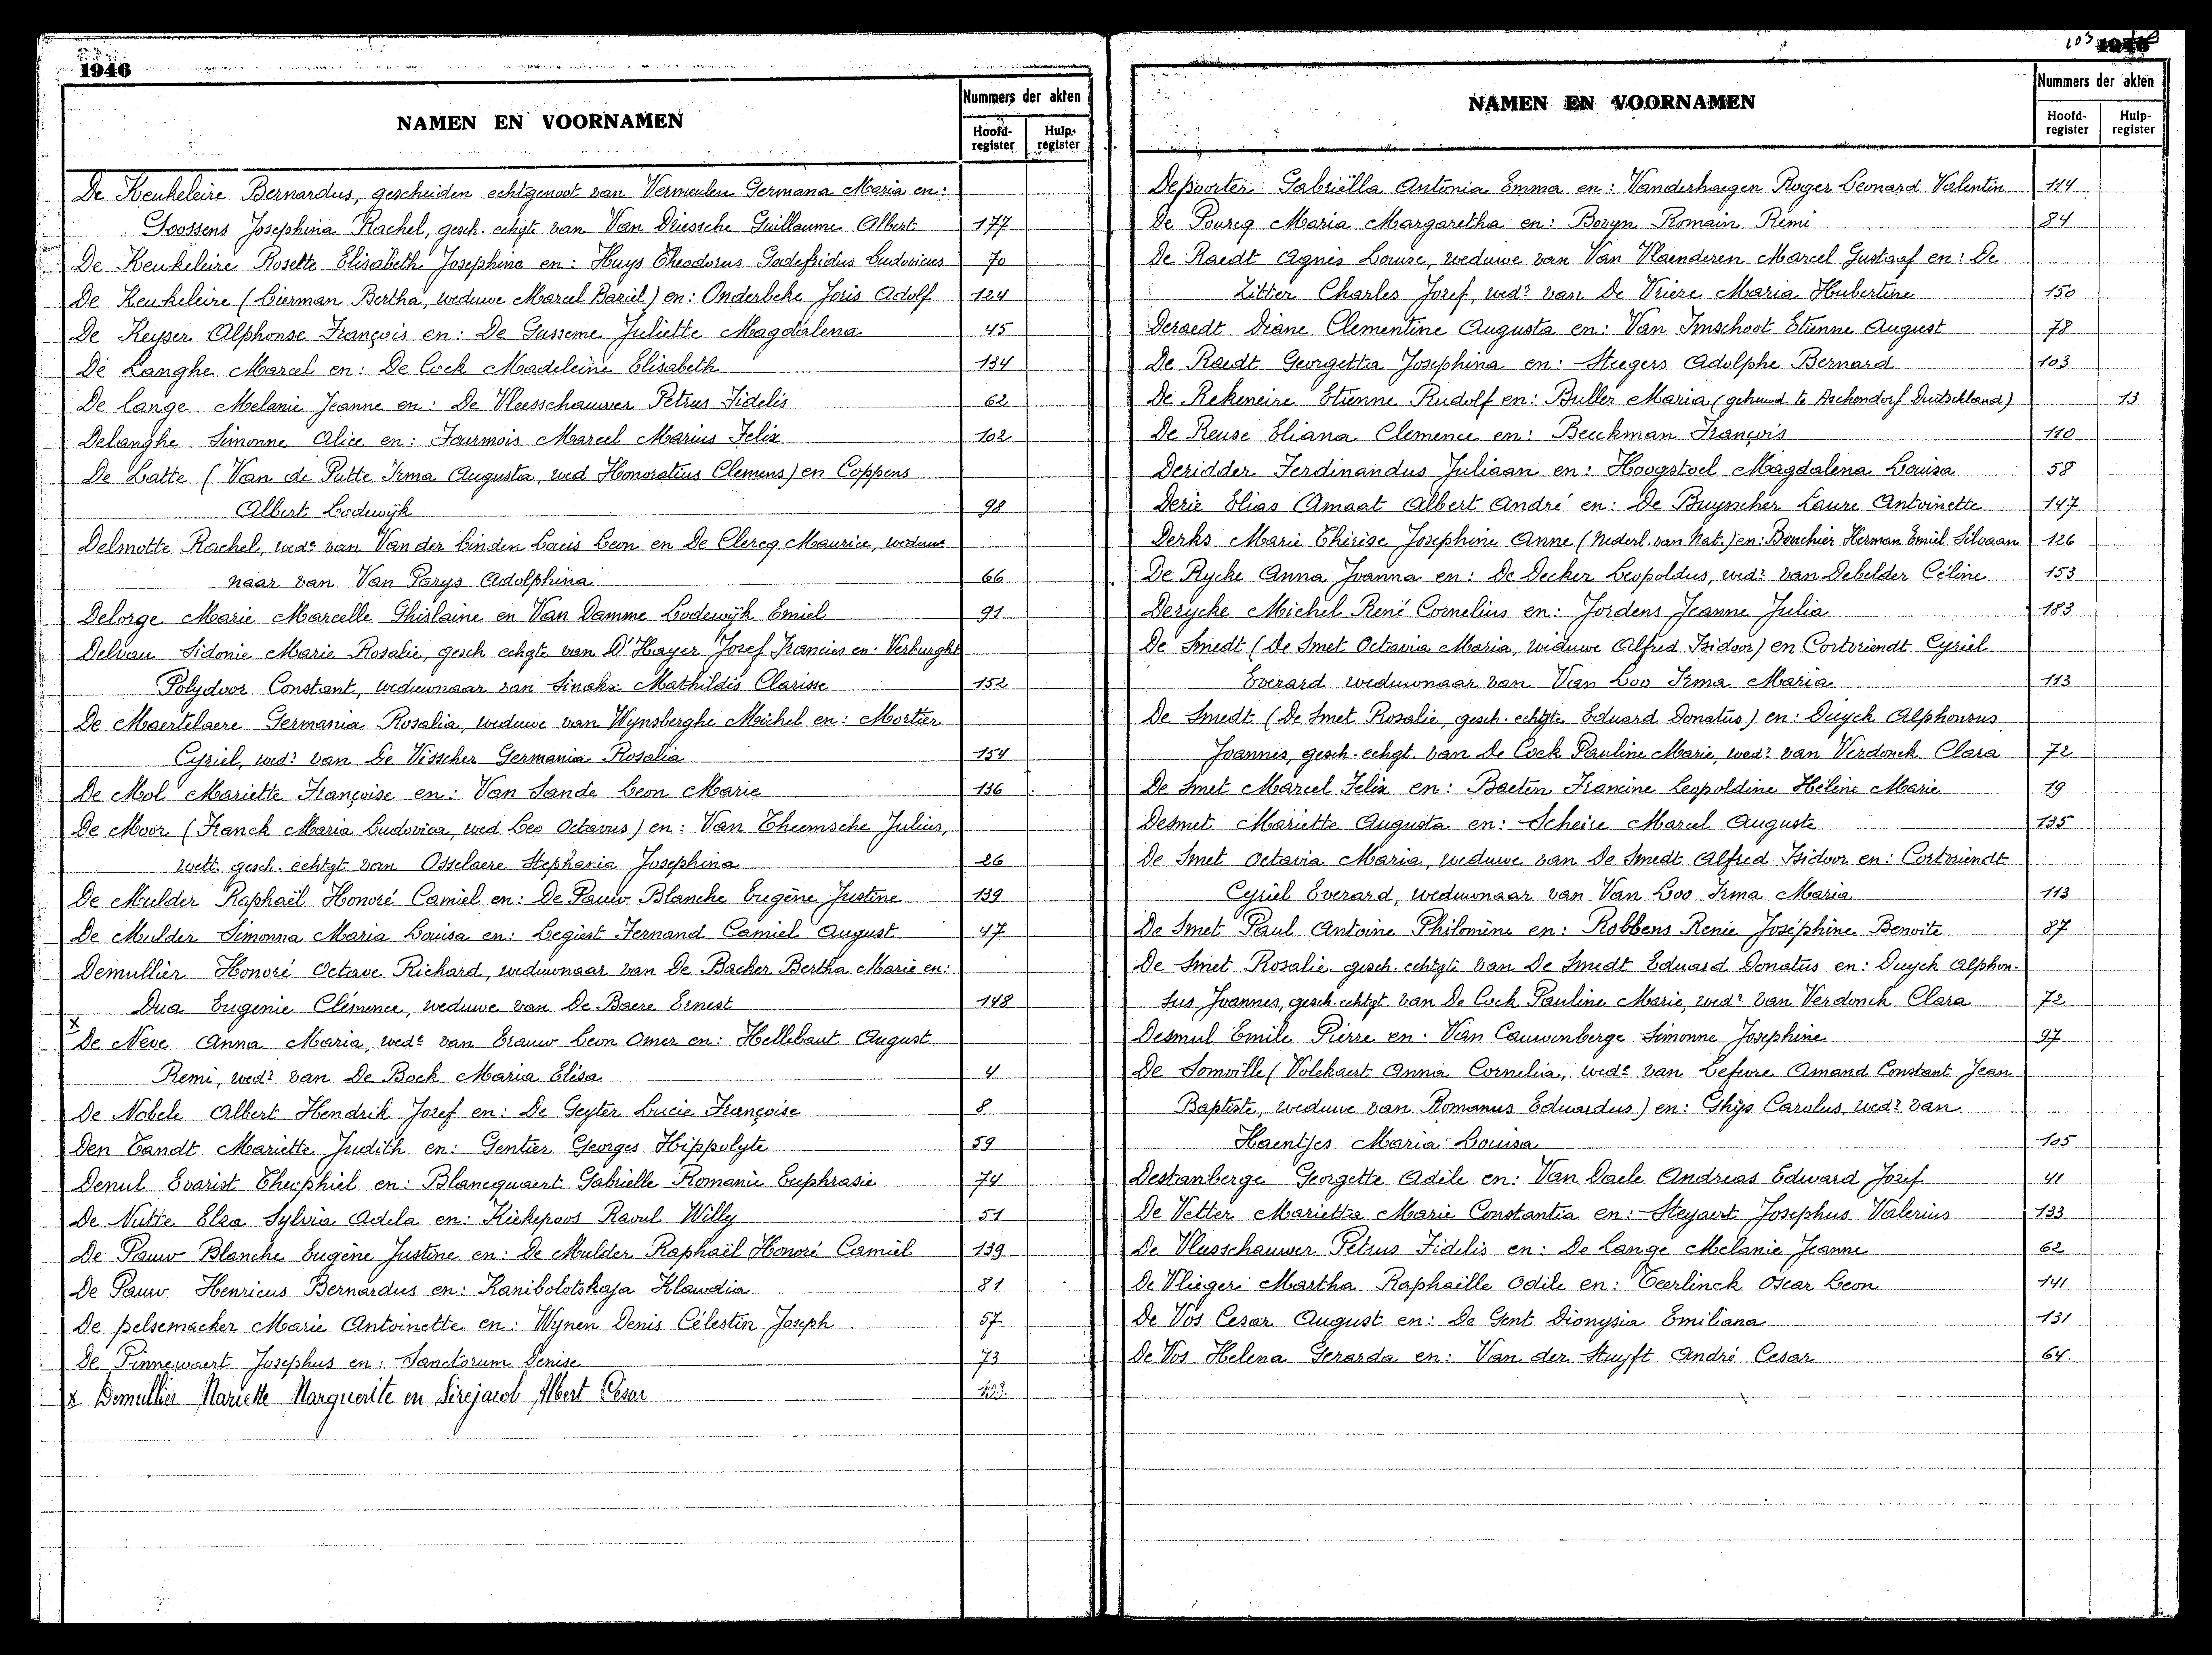 1946
NAMEN EN VOORNAMEN
Nummers der akten
Hoofd-register
Hulp-register
De Keukeleire Bernardus, gescheiden echtgenoot van Vermeulen Germana Maria en:
Goossens Josephina Rachel, gesch. echgt van Van Driessche Guillaume Albert 177
De Keukeleire Rosette Elisabeth Josephine en: Huys Theodorus Godefridus Ludovicus 70
De Keukeleire (Lierman Bertha, weduwe Marcel Baziel) en: Onderbeke Joris Adolf 124
De Keyser Alphonse François en: De Gusseme Juliette Magdalena 45
De Langhe Marcel en: De Cock Madeleine Elisabeth 134
De lange Melanie Jeanne en: De Vleesschauwer Petrus Fidelis 62
Delanghe Simonne Alice en: Fourmois Marcel Marius Felix 102
De Latte (Van de Putte Irma Augusta, wed Honoratius Clemens) en Coppens
Albert Lodewijk 98
Delmotte Rachel, wede van Van der Linden Louis Leon en De Clercq Maurice, weduwe
naar van Van Parys Adolphina 66
Delorge Marie Marcelle Ghislaine en Van Damme Lodewijk Emiel 91
Delvau Sidonie Marie Rosalie, gesch echgte van D'Hayer Jozef Francies en: Verburght
Polydoor Constant, weduwnaar van Sinake Mathildis Clarisse 152
De Maertelaere Germania Rosalia, weduwe van Wynsberghe Michel en: Mortier
Cyriel, wedr van De Visscher Germania Rosalia 154
De Mol Mariette Françoise en: Van Sande Leon Marie 136
De Moor (Franck Maria Ludovica, wed Leo Octavus) en: Van Theemsche Julius,
wett. gesch. echtgt van Osselaere Stephania Josephina 26
De Mulder Raphaël Honoré Camiel en: De Pauw Blanche Eugène Justine 139
De Mulder Simonna Maria Louisa en: Legiest Fernand Camiel August 47
Demullier Honoré Octave Richard, weduwnaar van De Backer Bertha Marie en:
Dua Eugenie Clémence, weduwe van De Baere Ernest 148
x De Neve Anna Maria, wede van Brauw Leon Omer en: Hellebaut August
Remi, wedr van De Bock Maria Elisa 4
De Nobele Albert Hendrik Jozef en: De Geyter Lucie Françoise 8
Den Tandt Mariette Judith en: Gentier Georges Hippolyte 59
Denul Evarist Theophiel en: Blancquaert Gabrielle Romanie Euphrasie 74
De Nutte Elza Sylvia Adela en: Kiekepoos Raoul Willy 51
De Pauw Blanche Eugène Justine en: De Mulder Raphaël Honoré Camiel 139
De Pauw Henricus Bernardus en: Kanibolotskaja Klawdia 81
De pelsemacker Marie Antoinette en: Wynen Denis Célestin Joseph 57
De Pinnewaert Josephus en: Sanctorum Denise 73
x Demullier Mariette Marguerite en Sirejacob Albert César
103
1946
NAMEN EN VOORNAMEN
Nummers der akten
Hoofd-register
Hulp-register
Depoorter Gabriëlla Antonia Emma en: Vanderhaegen Roger Leonard Valentin 114
De Pourcq Maria Margaretha en: Boryn Romain Remi 84
De Raedt Agnès Louise, weduwe van Van Vlaenderen Marcel Gustaaf en: De
Zitter Charles Jozef, wedr van De Vriere Maria Hubertine 150
Deraedt Diane Clementine Augusta en: Van Imschoot Etienne August 78
De Raedt Georgetta Josephina en: Steegers Adolphe Bernard 103
De Rekeneire Etienne Rudolf en: Buller Maria (gehuwd te Aschendorf Duitschland) 13
De Reuse Eliana Clemence en: Beeckman François 110
Deridder Ferdinandus Juliaan en: Hoogstoel Magdalena Louisa 58
Derie Elias Amaat Albert André en: De Buysscher Laure Antoinette 147
Derks Marie Thérèse Josephine Anne (Nederl. van Nat.) en: Bouchier Herman Emiel Silvaan 126
De Rycke Anna Joanna en: De Decker Leopoldus, wedr van Debelder Céline 153
Derycke Michel René Cornelius en: Jordens Jeanne Julia 183
De Smedt (De Smet Octavia Maria, weduwe Alfred Isidoor) en Cortvriendt Cyriel
Everard weduwnaar van Van Loo Irma Maria 113
De Smedt (De Smet Rosalie, gesch. echtgte Eduard Donatus) en: Duyck Alphonsus
Joannes, gesch. echgt van De Cock Pauline Marie, wedr van Verdonck Clara 72
De Smet Marcel Felix en: Baeten Francine Leopoldine Hélène Marie 19
Desmet Mariette Augusta en: Scheire Marcel Auguste 135
De Smet Octavia Maria, weduwe van De Smedt Alfred Isidoor en: Cortvriendt
Cyriel Everard, weduwnaar van Van Loo Irma Maria 113
De Smet Paul Antoine Philomène en: Robbens Renie Joséphine Benoite 87
De Smet Rosalie, gesch. echtgte van De Smedt Eduard Donatus en: Duyck Alphon-
sus Joannes, gesch. echtgt van De Cock Pauline Marie, wedr van Verdonck Clara 72
Desmul Emile Pierre en: Van Cauwenberge Simonne Josephine 97
De Somville (Volckaert Anna Cornelia, wede van Lefevre Amand Constant Jean
Baptiste, weduwe van Romanus Eduardus) en: Ghijs Carolus, wedr van
Haentjes Maria Louisa 105
Destanberge Georgette Adile en: Van Daele Andreas Edward Jozef 41
De Vetter Marietta Marie Constantia en: Steyaert Josephus Valerius 133
De Vleesschauwer Petrus Fidelis en: De Lange Melanie Jeanne 62
De Vlieger Martha Raphaëlle Odile en: Teerlinck Oscar Leon 141
De Vos Cesar August en: De Gent Dionysia Emiliana 131
De Vos Helena Gerarda en: Van der Stuyft André Cesar 64.